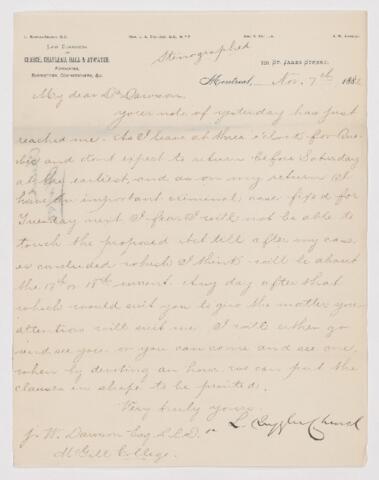 L. Ruggles Church, Q.C.
Hon. J. A. Chapleau, Q.C., M.P.P.
Law Chambers
OF
CHURCH, CHAPLEAU, HALL & ATWATER,
Advocates,
Barristers, Commissioners, &c.
Stenographed
St. James Street,
Montreal, Nov. 7th 188
My dear Dr Dawson
Your note of yesterday has just
reached me. As I leave at three o'clock for Que-
bec and dont expect to return before Saturday
at the earliest, and as on my return I
have an important criminal case fixed for
Tuesday next I fear I will not be able to
touch the proposed Act till after my case
is concluded which I think will be about
the 17th or 18th inst. Any day after that
which would suit you to give the matter your
attention will suit me. I will either go
and see you or you can come and see me,
when by devoting an hour we can put the
clauses in shape to be printed.
Very truly yours
L. Ruggles Church
J. W. Dawson Esq. L.L.D.
McGill College.